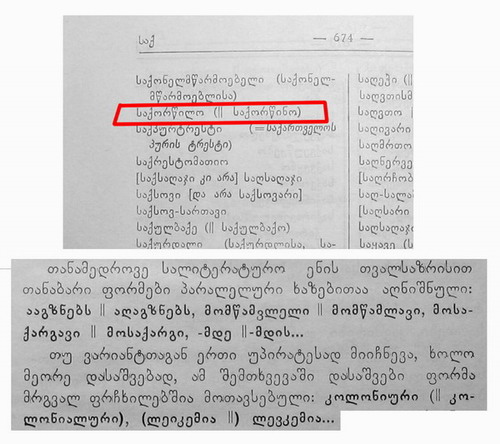 საქ — 674 —
საქონელმწარმოებელი (საქონელ-
მწარმოებლისა)
საქორწილო (|| საქორწინო)
საქპურტრესტი (=საქართველოს
პურის ტრესტი)
საქრესტომათიო
[საქსაღაჯი კი არა] საღსაღაჯი
საქსოვი [და არა საქსოვარი]
საქსოვ-სართავი
საქულბაქე (|| საქულბაქო)
საქურდალი (საქურდლისა, სა-
საღეჭი (||
საღვთისმ
საღვთო (
საღივარი
საღმრთო
საღნერვე
[საღრჩობ
საღ-სალა
[საღსარი
საღსაღაჯი
საყავე (
თანამედროვე სალიტერატურო ენის თვალსაზრისით
თანაბარი ფორმები პარალელური ხაზებითაა აღნიშნული:
ააგზნებს || აღაგზნებს, მომწამვლელი || მომწამლავი, მოსა-
ქარგავი || მოსაქარგი, -მდე ||-მდის...
თუ ვარიანტთაგან ერთი უპირატესად მიიჩნევა, ხოლო
მეორე დასაშვებად, ამ შემთხვევაში დასაშვები ფორმა
მრგვალ ფრჩხილებშია მოთავსებული: კოლონიური (|| კო-
ლონიალური), (ლეიკემია ||) ლევკემია...